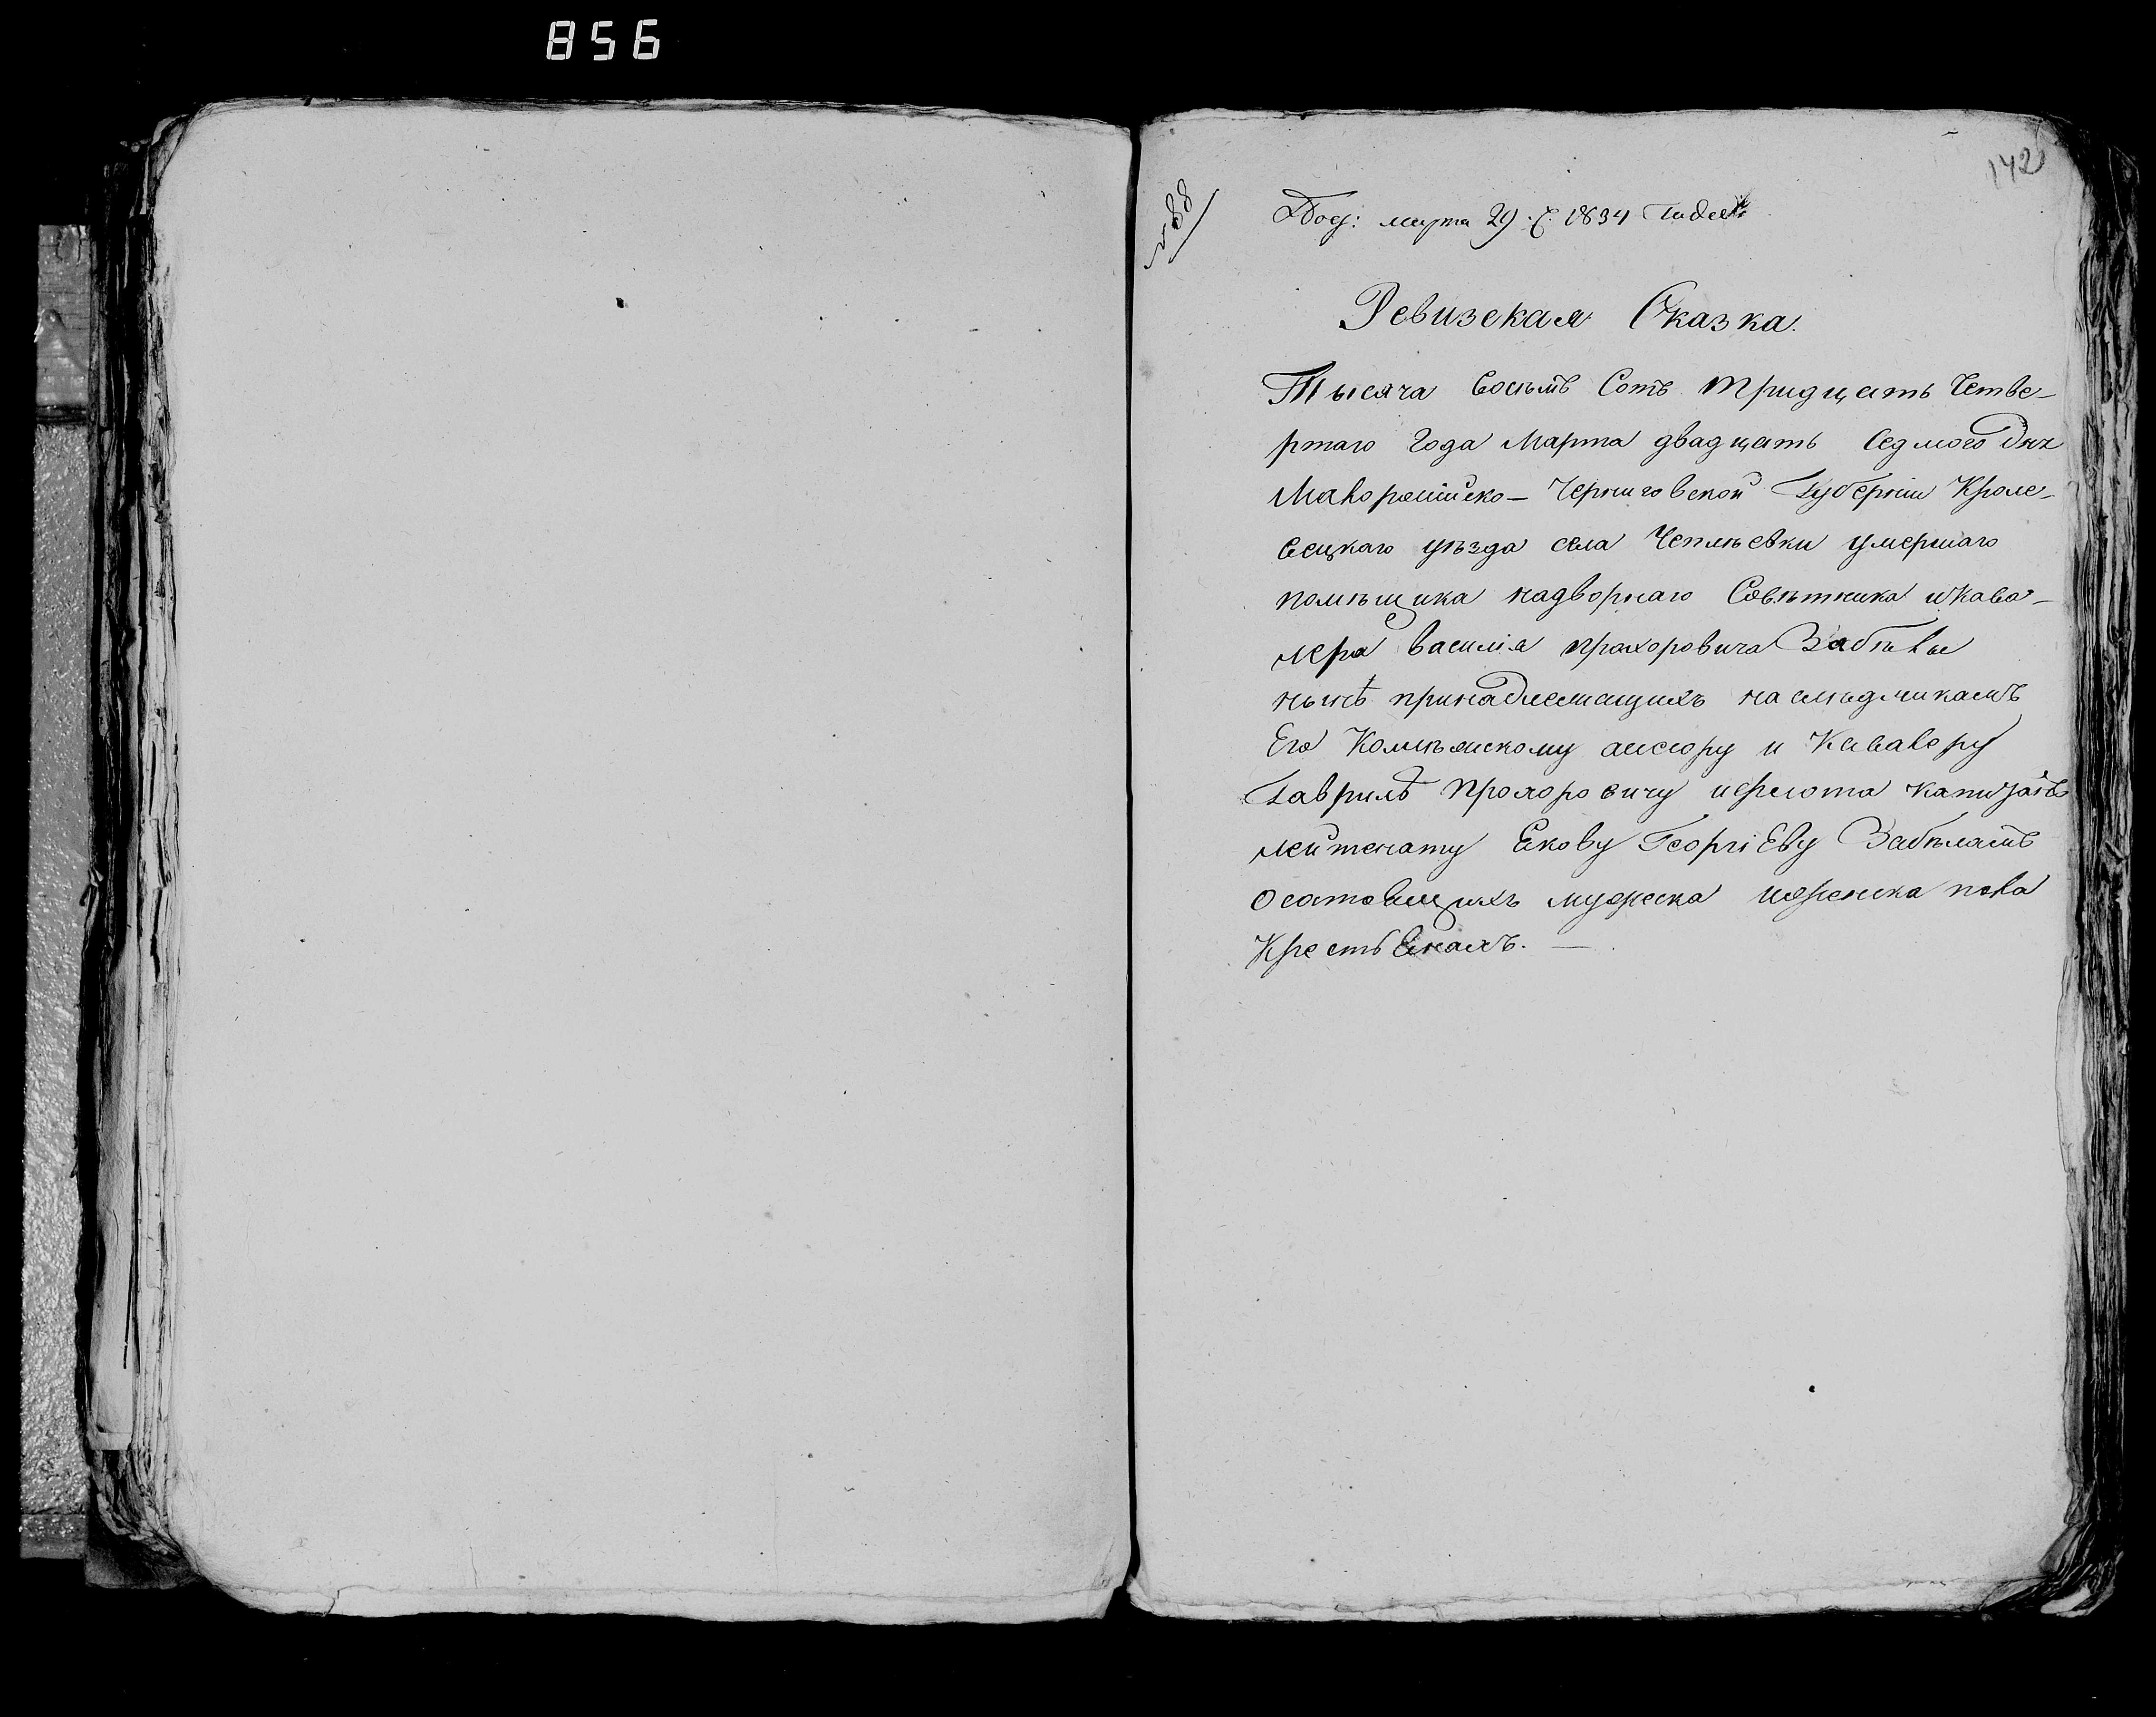 856
142
№ 88
Под: марта 29. д. 1834 Года
Ревизская Сказка.
Тысяча восемъ Сотъ тридцать Четве-
ртаго Года Марта двадцать Седмого дня
Малоросiйско- Черниговской Губернiи Кроле-
вецкаго уѣзда села Чеплѣевки умершаго
помѣщика надворнаго Совѣтника и Кава-
лера василiя прохоровича Забѣлы
нынѣ принадлежащихъ наслѣдникамъ
Его Колѣжскому ассесору и Кавалеру
Гаврилѣ Прохоровичу и флота капитанъ
лейтенату Якову ГеоргiЕву Забѣламъ
осатовшихъ мужеска и женска пола
Крестьянахъ. —